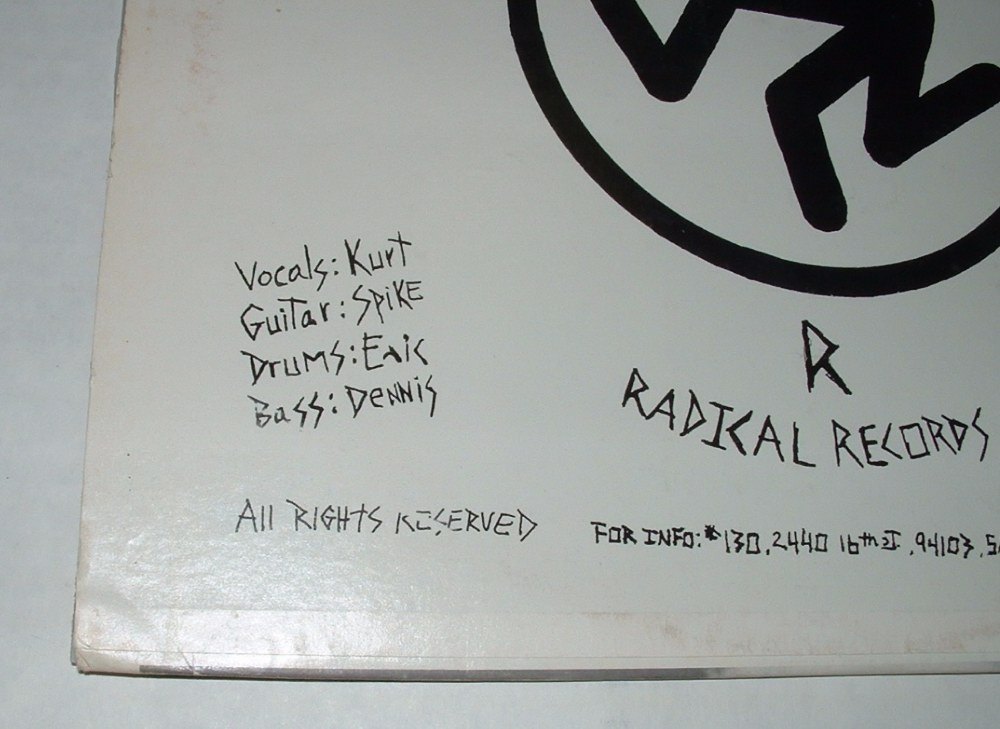 Vocals: Kurt
Guitar: Spike
Drums: Eric
Bass: Dennis
R
RADICAL RECORDS
All RIGHTS RESERVED
FOR INFO: #130, 2440 16th ST, 94103, S